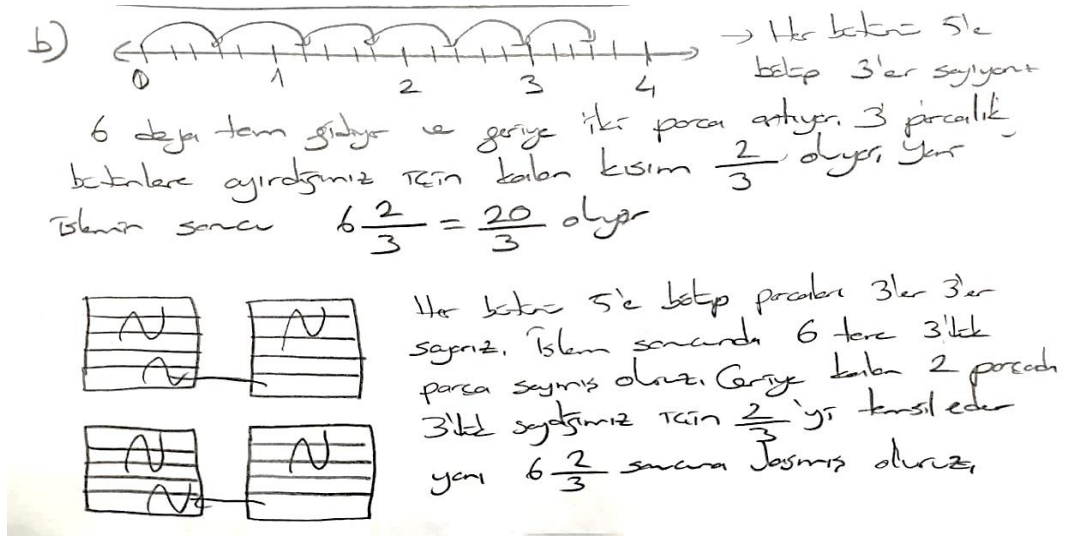 b)
0 1 2 3 4
→ Her bütünü 5'e
bölüp 3'er sayıyoruz
6 defa tam gidiyor ve geriye iki parça artıyor. 3 parçalık
bütünlere ayırdığımız için kalan kısım 2/3 oluyor. Yani
işlemin sonucu 6 2/3 = 20/3 oluyor
Her bütünü 5'e bölüp parçaları 3'er 3'er
sayarız. İşlem sonucunda 6 tane 3'lük
parça saymış oluruz. Geriye kalan 2 parçada
3'lük saydığımız için 2/3'yi temsil eder
yani 6 2/3 sonucuna ulaşmış oluruz.